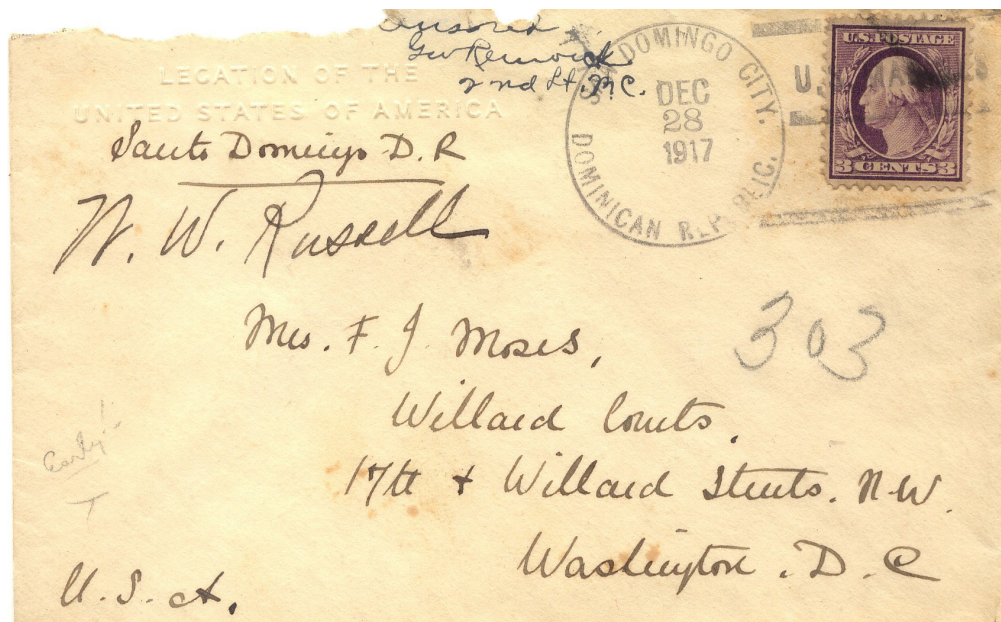 Censored
Geo Renwick
2nd Lt. M.C.
LEGATION OF THE
UNITED STATES OF AMERICA
Santo Domingo D.R
W. W. Russell
SANTO DOMINGO CITY.
DEC
28
1917
DOMINICAN REPUBLIC.
U.S. POSTAGE
3 CENTS 3
Mrs. F. J. Moses,
Willard Courts,
303
17th + Willard Streets. N.W.
Washington. D. C
U. S. A.
Early!